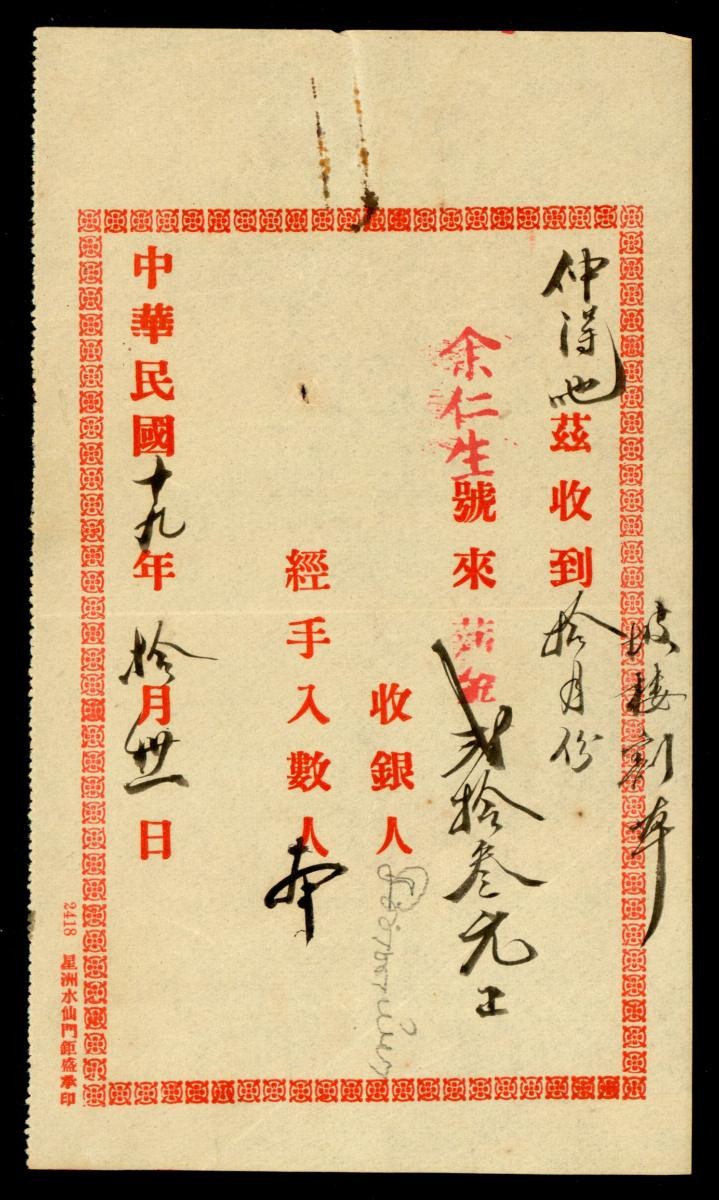 坡樓割草
仲得地茲收到拾月份
余仁生號來薪金弍拾叁元正
收銀人
經手入數人
中華民國十九年拾月卅一日
2418 星洲水仙門鉅盛承印